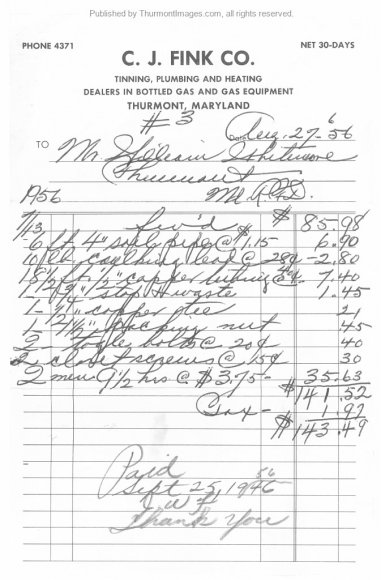 Published by ThurmontImages.com, all rights reserved.
PHONE 4371
NET 30-DAYS
C. J. FINK CO.
TINNING, PLUMBING AND HEATING
DEALERS IN BOTTLED GAS AND GAS EQUIPMENT
THURMONT, MARYLAND
#3
Date Aug. 27-56
TO Mr. William Whitmore
Thurmont
1956 Md. R.F.D.
7/13 fwd $ 85.98
6 ft. 4" soil pipe @ $1.15 6.90
10 lb. caulking lead @ 28¢ - 2.80
18 1/2 ft. 1/2" copper tubing @ 7.40
1 - stop & waste 1.45
1 - 1/2" copper tee 21
1 - 1 1/2" packing nut 45
2 - toggle bolts @ 20¢ 40
2 closet screws @ 15¢ 30
2 men 9 1/2 hrs @ $3.75 - 35.63
$ 141.52
Tax - 1.97
$ 143.49
Paid
Sept 25, 1956
Thank You